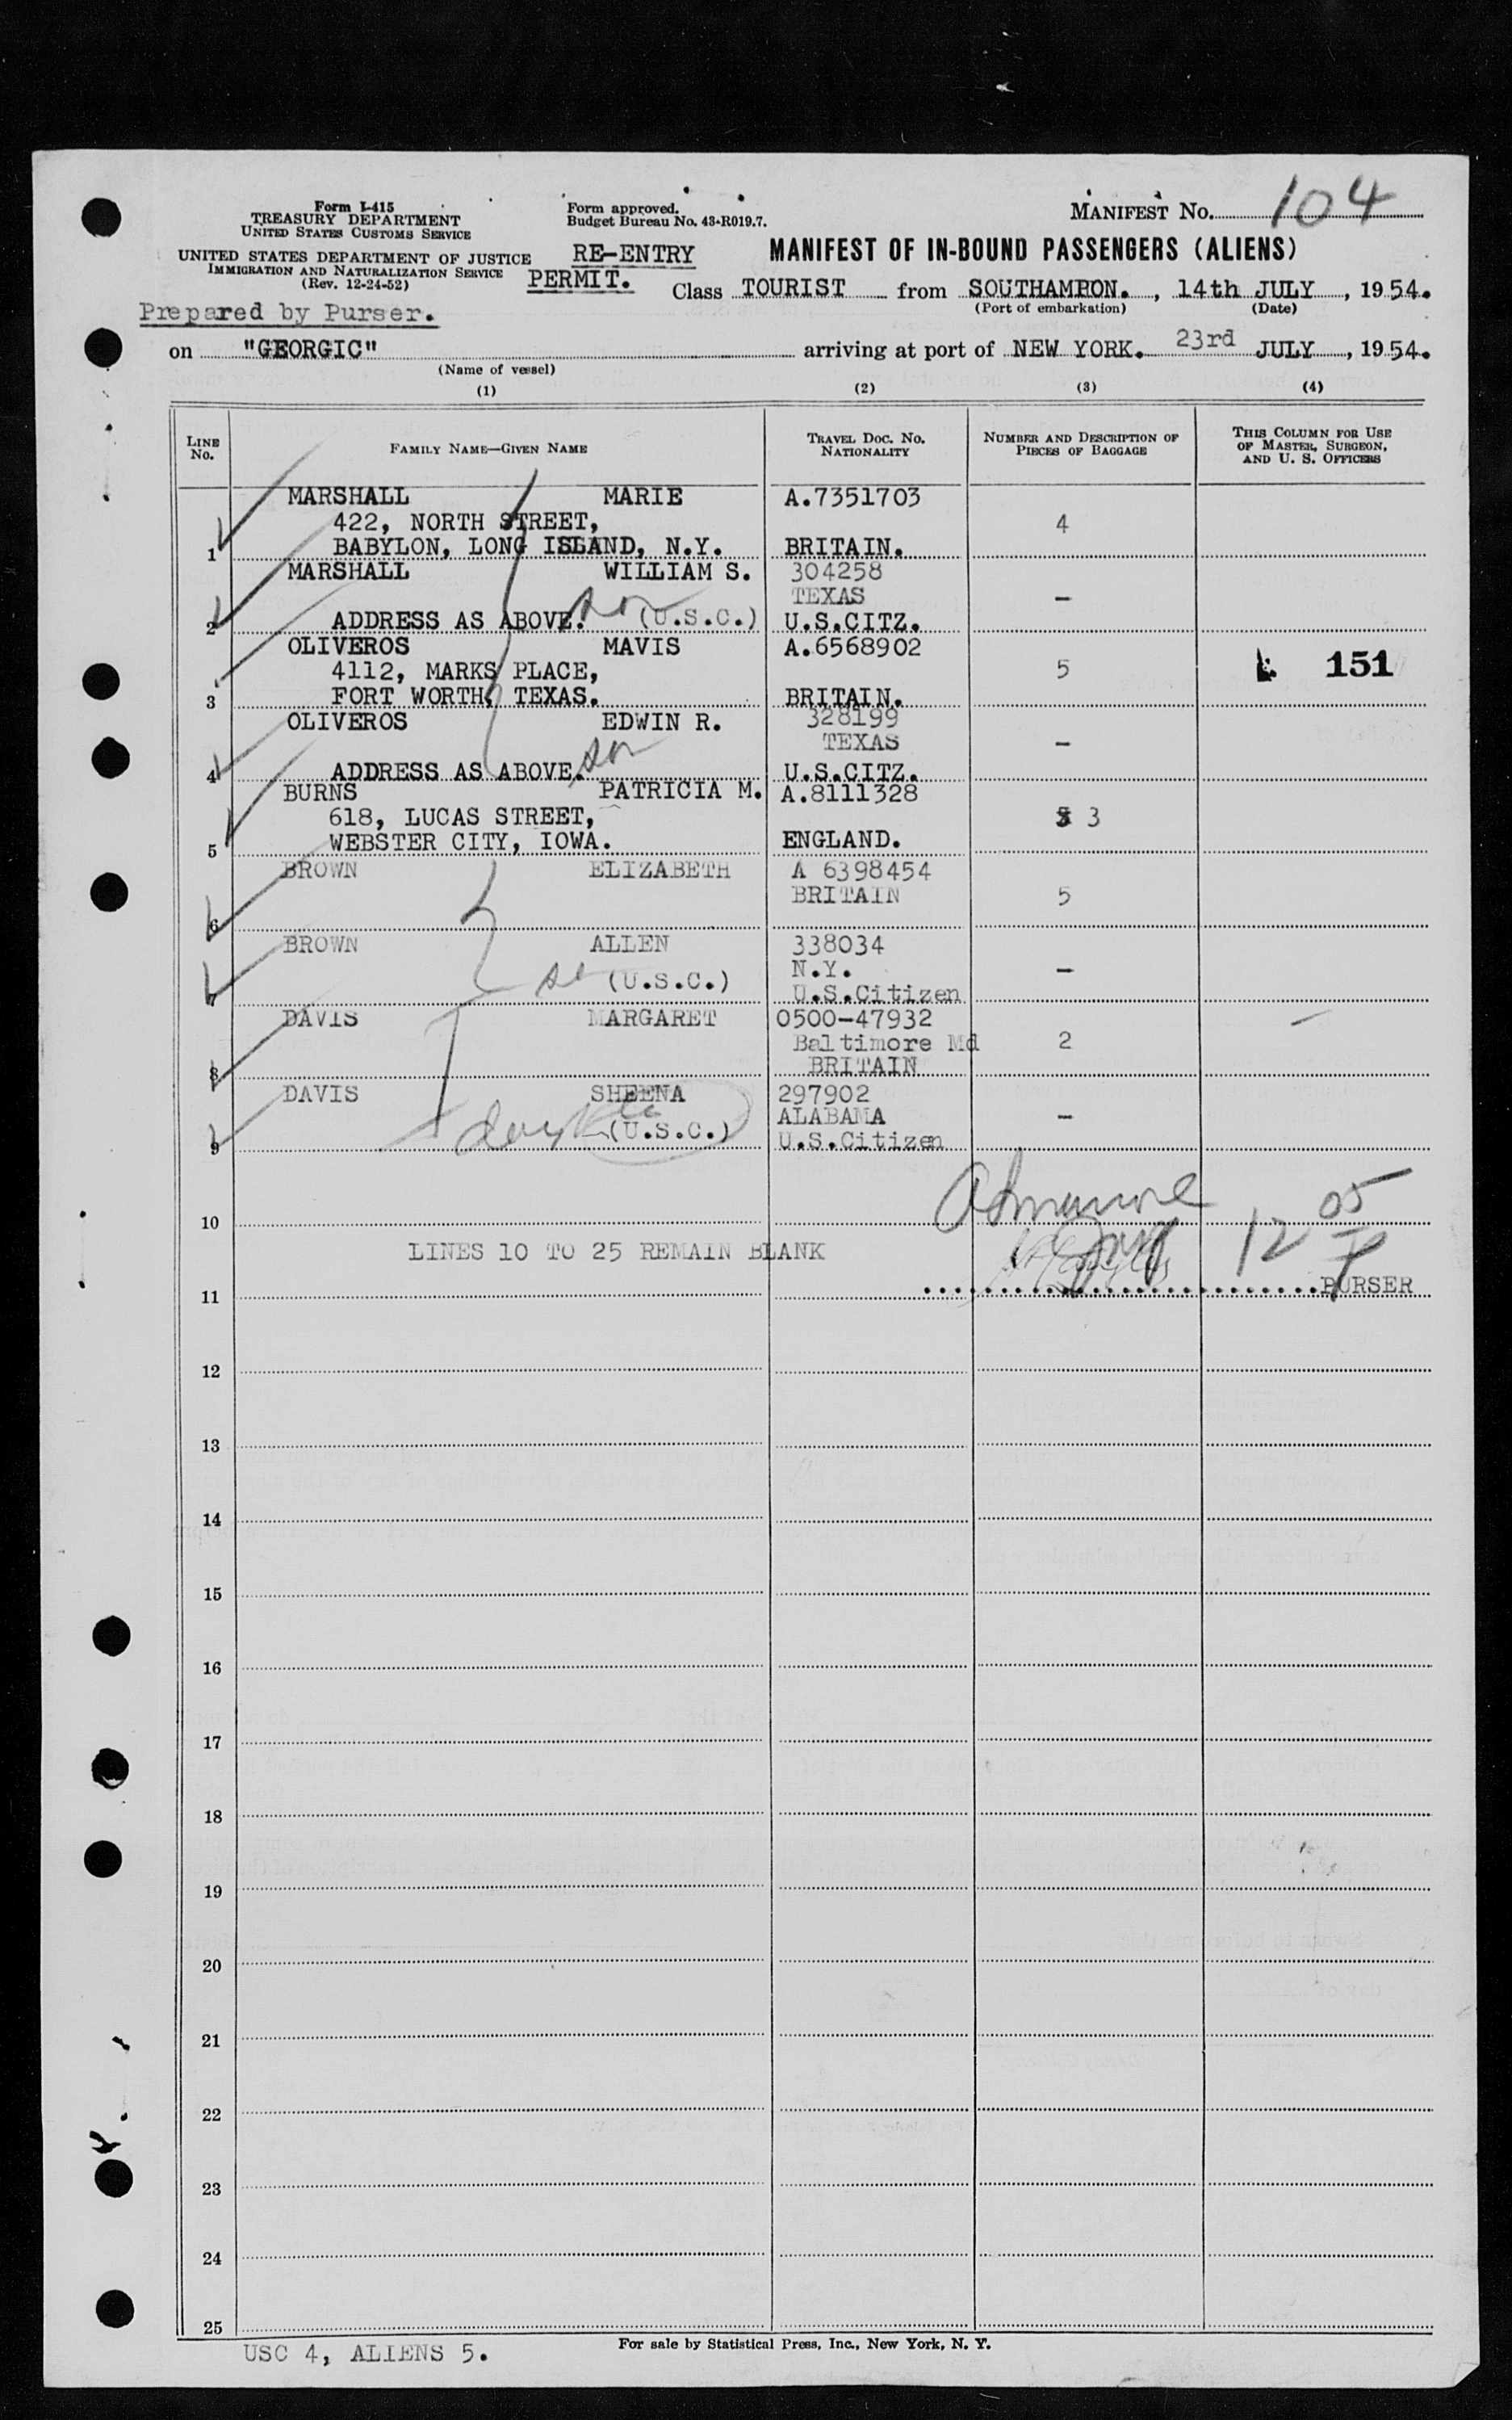 Form I-415
TREASURY DEPARTMENT
UNITED STATES CUSTOMS SERVICE
UNITED STATES DEPARTMENT OF JUSTICE
IMMIGRATION AND NATURALIZATION SERVICE
(Rev. 12-24-52)
Prepared by Purser.
Form approved.
Budget Bureau No. 43-R019.7.
RE-ENTRY
PERMIT.
MANIFEST NO. 104
MANIFEST OF IN-BOUND PASSENGERS (ALIENS)
Class TOURIST from SOUTHAMPON. , 14th JULY , 1954.
(Port of embarkation) (Date)
on "GEORGIC" arriving at port of NEW YORK. 23rd JULY , 1954.
(Name of vessel)
(1) (2) (3) (4)
LINE No. FAMILY NAME—GIVEN NAME TRAVEL DOC. NO. NATIONALITY NUMBER AND DESCRIPTION OF PIECES OF BAGGAGE THIS COLUMN FOR USE OF MASTER, SURGEON, AND U. S. OFFICERS
MARSHALL MARIE A.7351703
422, NORTH STREET, 4
1 BABYLON, LONG ISLAND, N.Y. BRITAIN.
MARSHALL WILLIAM S. 304258
TEXAS -
2 ADDRESS AS ABOVE. son (U.S.C.) U.S.CITZ.
OLIVEROS MAVIS A.6568902
4112, MARKS PLACE, 5 151
3 FORT WORTH, TEXAS. BRITAIN.
OLIVEROS EDWIN R. 328199
TEXAS -
4 ADDRESS AS ABOVE. son U.S.CITZ.
BURNS PATRICIA M. A.8111328
618, LUCAS STREET, 3
5 WEBSTER CITY, IOWA. ENGLAND.
BROWN ELIZABETH A 6398454
BRITAIN 5
6
BROWN ALLEN 338034
N.Y. -
7 (U.S.C.) U.S.Citizen
DAVIS MARGARET 0500-47932
Baltimore Md 2
8 BRITAIN
DAVIS SHEENA 297902
ALABAMA -
9 (U.S.C.) U.S.Citizen
10
LINES 10 TO 25 REMAIN BLANK
12 05
11 PURSER
12
13
14
15
16
17
18
19
20
21
22
23
24
25
USC 4, ALIENS 5.
For sale by Statistical Press, Inc., New York, N. Y.